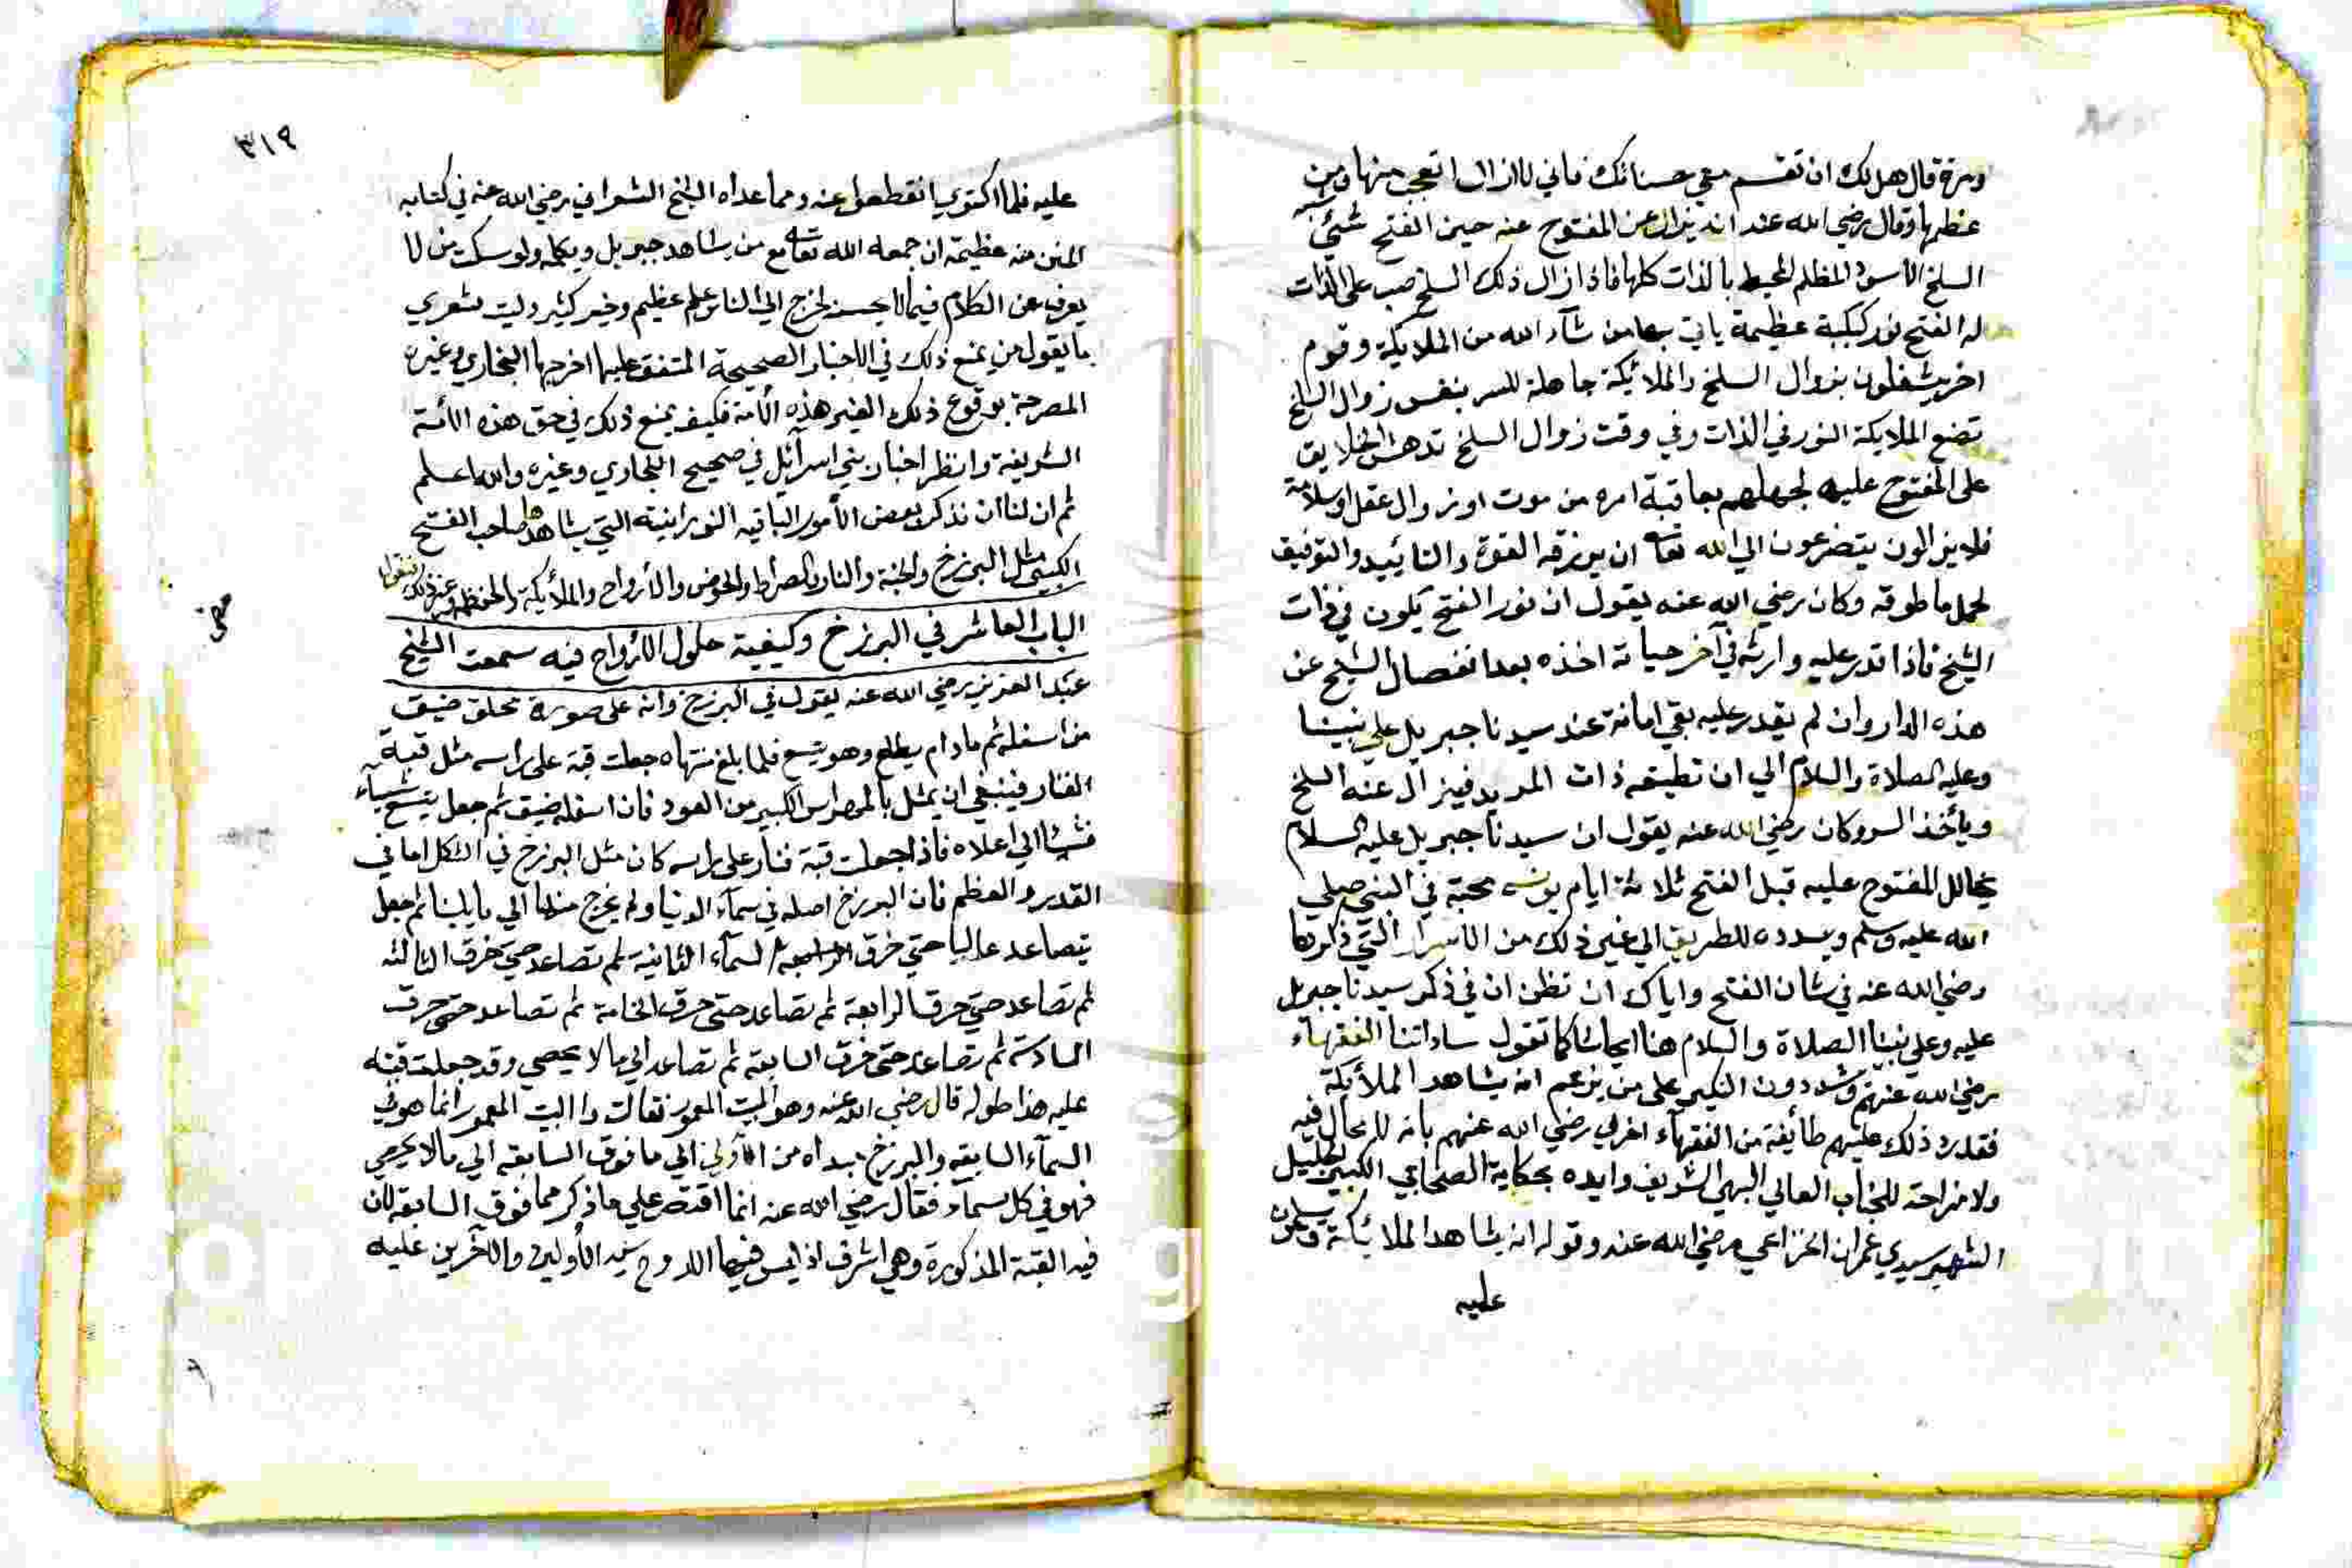 ومرة قال هل لك ان تقسم معي حسناتك فاني لا ازال اتعجب منها ومن
عظمها وقال رضي الله عنه انه يزال عن المفتوح عنه حين الفتح شئ يشبه
السلخ الاسود المظلم المحيط بالذات كلها فاذا زال ذلك السلخ صب على الذات
له الفتح نور كبكبة عظيمة ياتي بها من شآء الله من الملايكة وقوم
اخر يشغلون بزوال السلخ والملائكة حاملة للسر بنفس زوال السلخ
تضع الملايكة النور في الذات وفي وقت زوال السلخ تدهش الخلايق
على المفتوح عليه لجهلهم بعاقبة امره من موت او زوال عقل او سلامة
فلا يزالون يتضرعون الي الله تعا ان يرزقه القوة والتائييد والتوفيق
لحمل ما طوقه وكان رضي الله عنه يقول ان نور الفتح يكون في ذات
الشيخ فاذا قدر عليه وارثه في آخر حياته اخذه بعد انفصال الشيخ عن
هذه الدار وان لم يقدر عليه بقي امانة عند سيدنا جبريل علي نبينا
وعليه الصلاة والسلام الي ان تطيقه ذات المريد فيزال عنه السلخ
وياخذ السر وكان رضي الله عنه يقول ان سيدنا جبريل عليه السلام
يخالل المفتوح عليه قبل الفتح ثلاثة ايام يونسه محبة في النبي صلي
الله عليه وسلم ويسدده للطريق الي غير ذلك من الاسرار التي ذكرها
رضي الله عنه في شان الفتح واياك ان تظن ان في ذكر سيدنا جبريل
عليه وعلي نبينا الصلاة والسلام هنا ايحاشا كما تقول ساداتنا الفقهآء
رضي الله عنهم ويشددون النكير على من يزعم انه يشاهد الملأيكة
فقد رد ذلك عليهم طائفة من الفقهآء اخري رضي الله عنهم بانه لا محال فيه
ولا مزاحة للجناب العالي البهي الشريف وايده بحكاية الصحابي الكبير الجليل
الشهير سيدي عمران الخزاعي رضي الله عنه وقوله انه يشاهد الملائكة
عليه
٣١٩
عليه فلما اكتوي انقطعوا عنه ومما عداه الشيخ الشعراني رضي الله عنه في كتابه
المنن منه عظيمة ان جمعه الله تعا مع من يشاهد جبريل ويكلمه ولو سكت من لا
يعرف عن الكلام فيما لا يحسن لخرج الي الناس علم عظيم وخير كثير وليت شعري
ما يقول من يمنع ذلك في الاخبار الصحيحة المتفق عليها اخرجها البخاري وغيره
المصرحة بوقوع ذلك لغير هذه الأمة فكيف يمنع ذلك في حق هذه الامة
الشريفة وانظر اخبار بني اسرآئيل في صحيح البخاري وغيره والله اعلم
ثم ان لنا ان نذكر بعض الأمور الباقيه النورانية التي يشاهدها صاحب الفتح
الكبير مثل البرزخ والجنة والنار والصراط والحوض والأرواح والملأيكة والحفظة وغير ذلك فنقول
الباب العاشر في البرزخ وكيفية حلول الأرواح فيه سمعت الشيخ
عبد العزيز رضي الله عنه يقول في البرزخ وانه على صورة محلق ضيق
من اسفله ثم مادام يطلع وهو يتسع فلما بلغ منتهاه جعلت قبة على راسه مثل قبة
الفنار فينبغي ان يمثل بالمهراس الكبير من العود فان اسفله ضيق ثم جعل يتسع شيئا
فشيئا الي اعلاه فاذا جعلت قبة فنار على راسه كان مثل البرزخ في الشكل اما في
القدر والعظم فان البرزخ اصله في سمآء الدنيا ولم يخرج منها الي ما يلينا ثم جعل
يتصاعد عاليا حتي خرق السمآء الثانية ثم تصاعد حتي خرق الثالثة
ثم تصاعد حتي خرق الرابعة ثم تصاعد حتي خرق الخامسة ثم تصاعد حتي خرق
السادسة ثم تصاعد حتي خرق السابعة ثم تصاعد الي مالا يحصي وقد جعلت قبته
عليه هذا طوله قال رضي الله عنه وهو البيت المعمور فقالت دا البيت المعمور انما هو في
السمآء السابعه والبرزخ مبداه من الأولي الي ما فوق السابعة الي مالا يحصي
فهو في كل سمآء فقال رضي الله عنه انما اقتصر علي ما ذكر مما فوق السابعة لان
فيه القبة المذكورة وهي اشرف اذ ليس فيها الا روح سيد الأولين والآخرين عليه